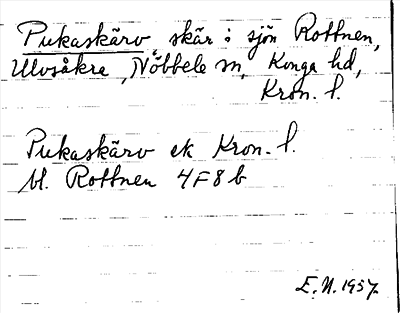 Pukaskärv, skär i sjön Rottnen,
Ulvsåkra, Nöbbele sn, Konga hd,
Kron. l.
Pukaskärv ek Kron. l.
bl. Rottnen 4F8b
E.N. 1957.